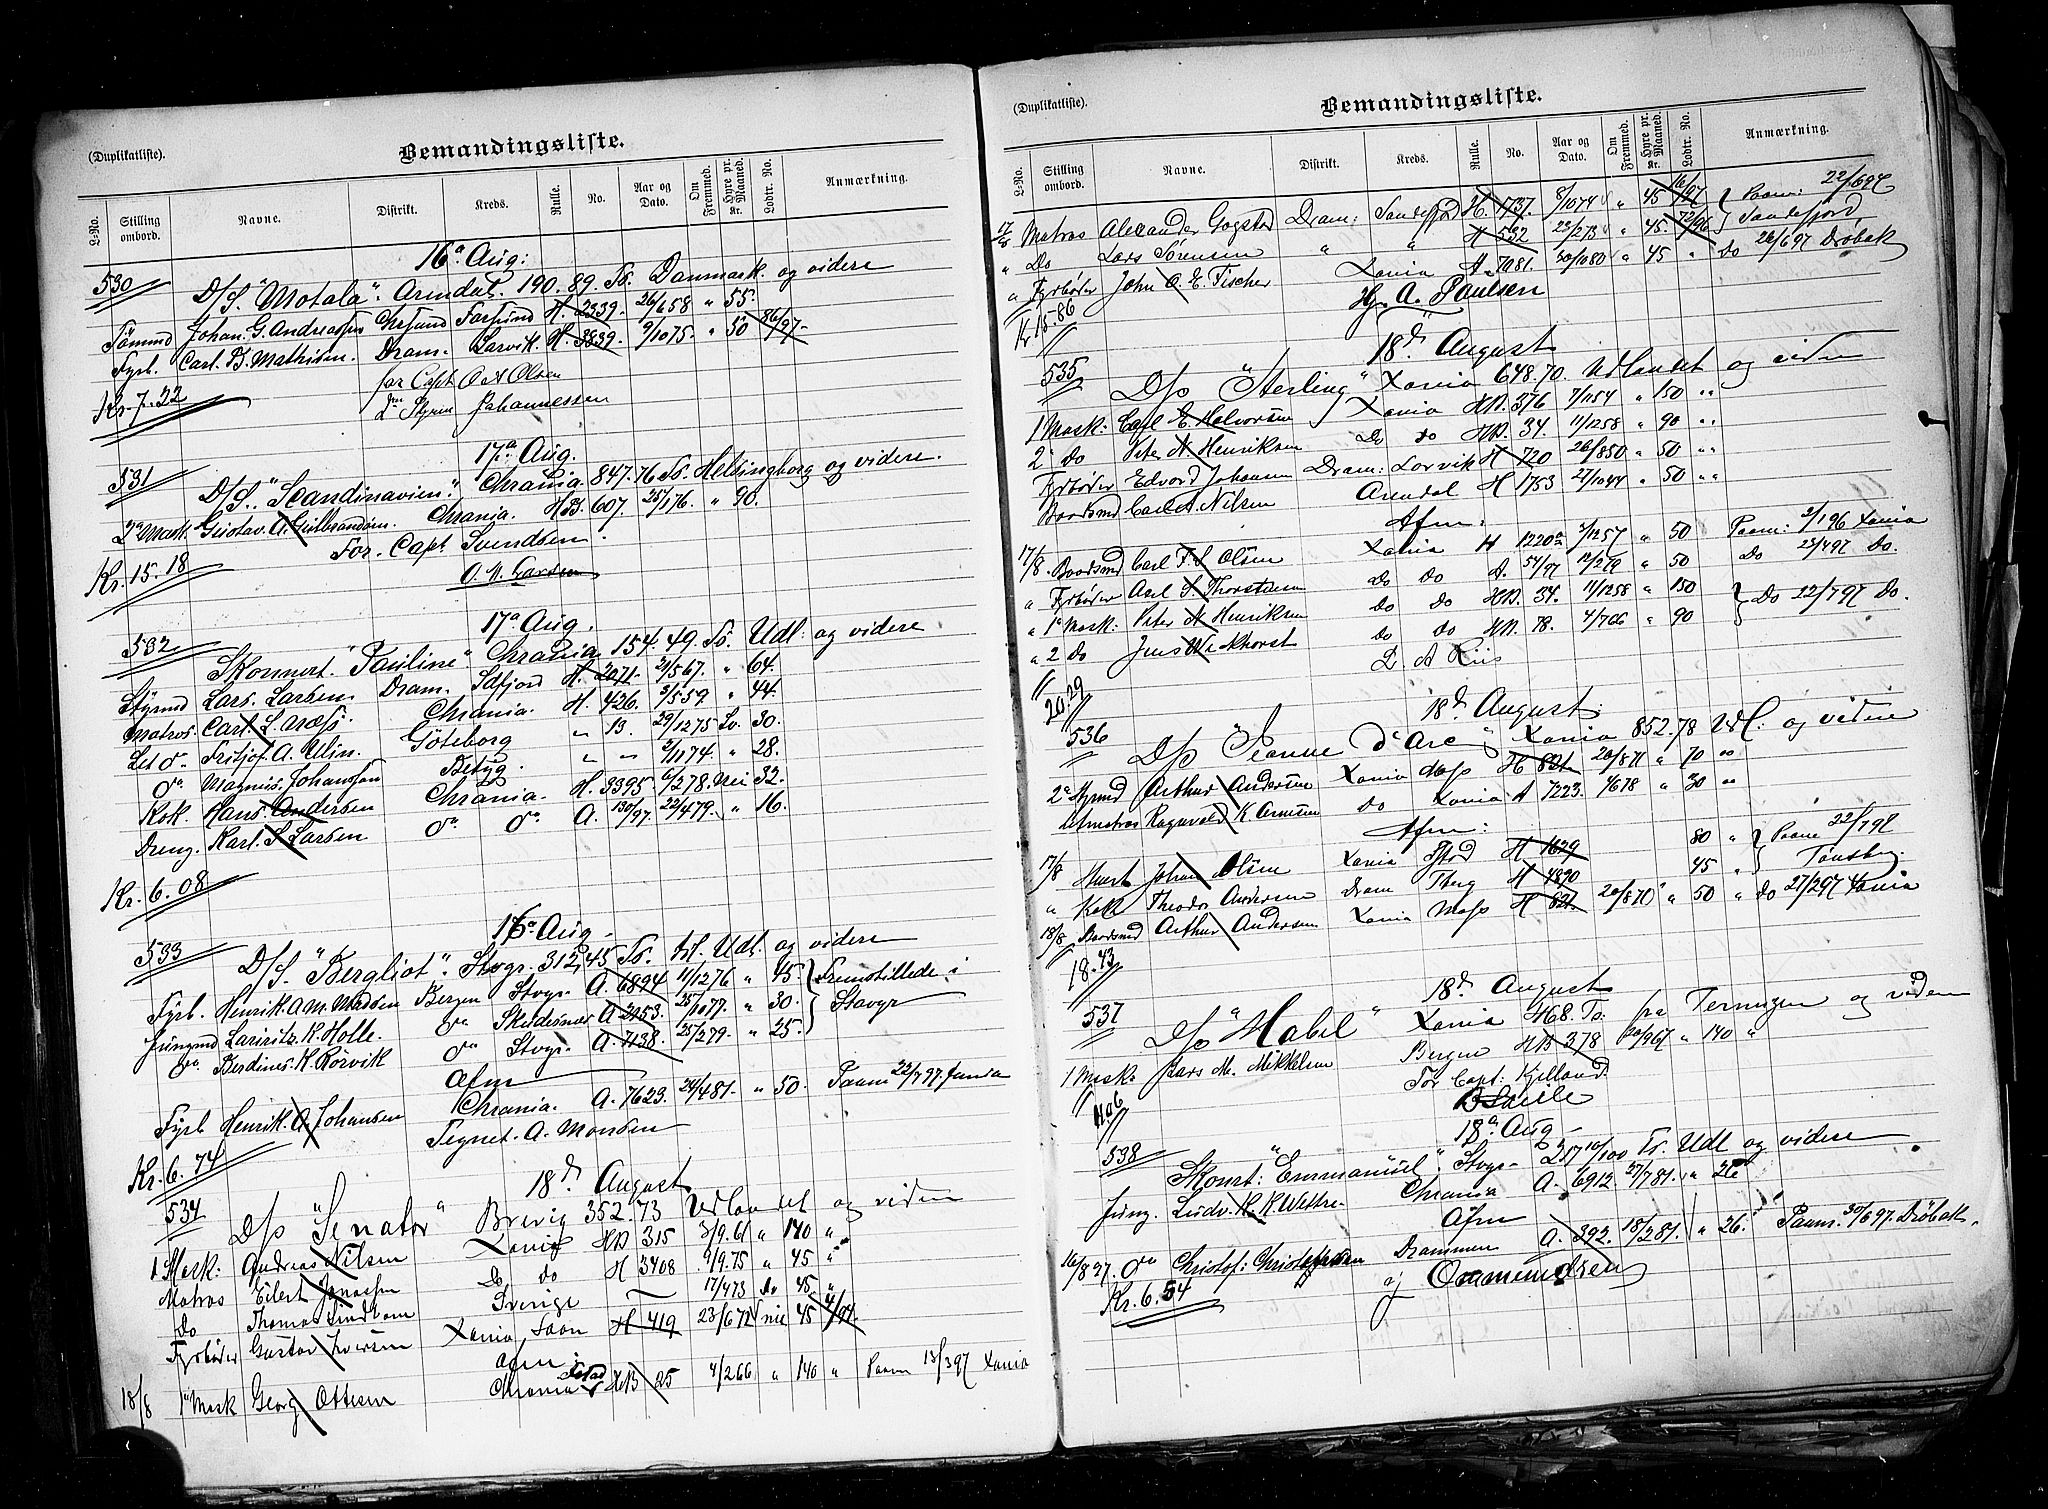 (Duplikatliste). Bemandingsliste.
L-No. Stilling ombord. Navne. Distrikt. Kreds. Rulle. No. Aar og Dato. Om Fremmed. Hyre pr. Maaned. Kr. Lodtr. No. Anmærkning.
16de Aug:
530 D/S. "Motala". Arendal. 190.89. To. Danmark. og videre
Tømmd Johan. G. Andreassen Chrsund Farsund H. 2339. 26/658 " 55.
Fyrb. Carl. B. Mathisen. Dram. Larvik. H. 3839. 9/1075. " 50 86/97.
for Capt O A Olsen
Kr. 7.22
Styrm Johannessen
17de Aug.
531 D/S. "Scandinavien". Chrania. 847.76 To. Helsingborg og videre.
2de Mask. Gustav. A. Gulbrandsen. Chrania. HB. 607. 25/176. " 90.
For. Capt Svendsen.
Kr. 15.18
O. M. Larsen
17de Aug.
532 Skonnert. "Pauline" Chrania 154.49. To. Udl: og videre
Styrmd Lars. Larsen Dram. Idfjord H. 2071. 21/567. " 64.
Matros. Carl. L. Næss. Chrania. H. 426. 3/559. " 44.
Let do Fritjof. A. Ulin. Göteborg " 13. 29/1275 Sv. 30.
do Magnus. Johansson Betyg. " " 2/1174 " 28.
Kok. Hans. Andersen Chrania. H. 3395. 6/278. Nei 32.
Dreng. Karl. S. Larsen do do A. 130/97. 22/479. " 16.
Kr. 6.08
16de Aug.
533 D/S. "Bergliot". Stvgr. 312,45 To. Udl. og videre
Fyrb. Henrik. A. M. Madsen Bergen Stvgr. A. 6894 11/1276 " 45. Fremstillede i
Jungmd Lauritz. K. Holle. do Skudesnæs A. 2953. 25/1077. " 30. Stavgr
do Berdines. K. Rørvik do Stvgr. A. 7138. 25/279. " 25.
Afm
Fyrb Henrik. A. Johansen Chrania. A. 7623. 24/481. " 50. Paam 22/797.
Tegnet. A. Monsen
Kr. 6.74
18d August
534 D/s "Senator" Brevig 352.73 Udlandet og viden
1 Mask: Andreas Nilsen Xania HB 315 3/9.61 " 140 "
Matros Eilert Jonassen Do do H 3408 9/9.75 " 45 "
Do Thomas Lindbom Sverige 17/473 do 45 "
Fyrbøder Gustav Iversen Xania Soon H 419 23/672 nei 45
Afm:
18/8 1ste Mask Georg Ottesen Chrania HB 25 4/266 " 140 " Paam 13/397 Xania
(Duplikatliste). Bemandingsliste.
L-No. Stilling ombord. Navne. Distrikt. Kreds. Rulle. No. Aar og Dato. Om Fremmed. Hyre pr. Maaned. Kr. Lodtr. No. Anmærkning.
17/8 Matros Alexander Gogstad Dram: Sandefjord H. 1737. 8/1074 " 45 16/97 Paam: 22/697
" Do Lars Sørensen " " H 532 22/273 " 45. 72/96 Sandefjord
" Fyrbøder John A. E. Fischer Xania A. 7081. 20/1080 " 45 " Do 26/697 Drøbak
Hg. A. Paulsen
Kr 15.86
18d August
535 D/s "Sterling" Xania 648.70. Udlandet og viden
1 Mask: Carl E. Halvorsen Xania HB. 376 7/1154 " 150 "
2 Do Peter A Henriksen Do do HB. 34. 11/1258 " 90 "
Fyrbøder Edvard Johansen Dram: Larvik H 720 26/850 " 50 "
Baadsmd Carl A. Nilsen Arendal H 1753 21/1044 " 50 "
Afm:
17/8. Baadsmd Carl F. S. Olsen Xania H 1220 2/1257 " 50 Paam: 2/196 Xania
" Fyrbøder Axel S. Thorstensen Do do A. 54/97 12/279 " 50 Do 23/497 Do.
" 1ste Mask: Peter A Henriksen do do HB. 34. 11/1258 " 150 Do 22/797 Do.
" 2 Do Jens Weckhorst do do HB. 78. 4/766 " 90
L. A Riis
20.29
18d August.
536 D/s "Jeanne d'Arc" Xania 852.78 Udl. og viden
2de Styrmd Arthur Andersen Xania Moss H 821. 20/871 " 70 "
Ragnvald K. Arnesen do Xania A 7223. " 30 "
Afm:
17/8 Hvert Johan Olsen Xania Fstad H 1629 80 " Paam 22/797
" Kok Theodor Andersen Dram Tberg H 4890 45 " Tønsberg.
18/8 Baadsmd Arthur Andersen Xania Moss H 821. 20/870 " 50 " Do 21/297 Xania
18.43
18d August
537 D/s "Mabel" Xania 468. To. fra Terningen og viden
1 Mask. Lars M. Mikkelsen Bergen HB 378 20/967 " 140 "
For Capt: Kjelland
11.06
18de Aug.
538 Skonrt: "Emmanuel". Stvgr. 257 10/100 To. Udl og videre
Jung. Ludv. H. K. Wettre. Chrania A. 6912 27/781. " 26
Afm
16/897. do Christof: Christoffersen Drammen A. 392. 18/281. " 26. Paam. 30/697. Drøbak.
Kr. 6.54
Ommundsen